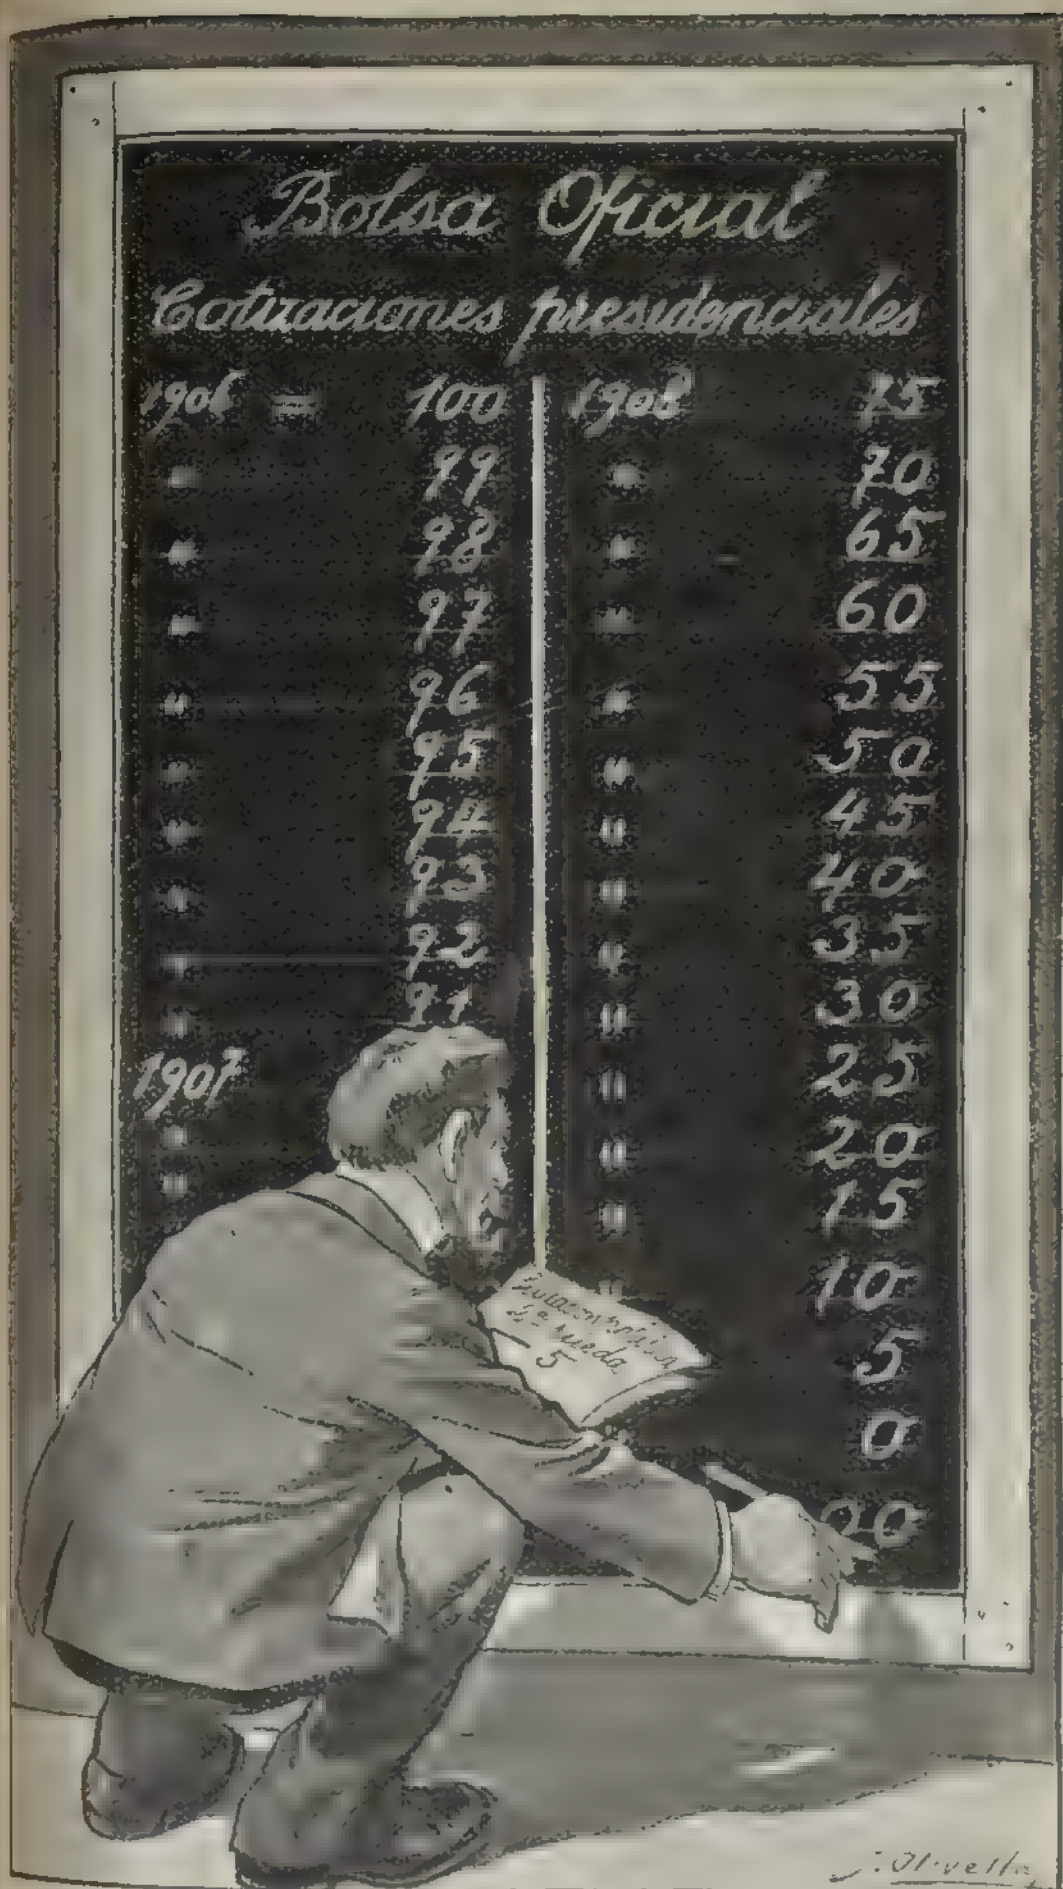 Bolsa Oficial
Cotizaciones presidenciales
1906 = 100
" 99
" 98
" 97
" 96
" 95
" 94
" 93
" 92
" 91
1907
"
"
1908 75
" 70
" 65
" 60
" 55
" 50
" 45
" 40
" 35
" 30
" 25
" 20
" 15
10
5
0
00
2ª rueda
5
J. Olivella